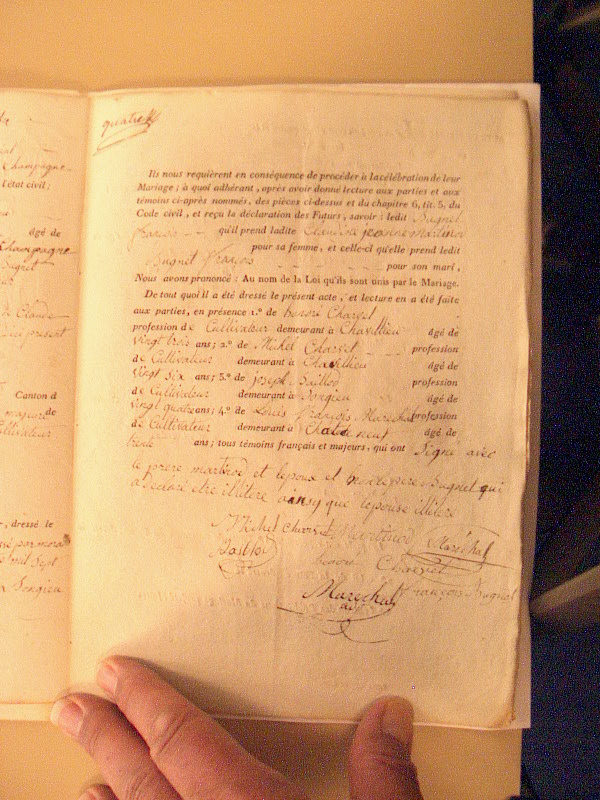 quatre
Ils nous requièrent en conséquence de procéder à la célébration de leur
Mariage ; à quoi adhérant, après avoir donné lecture aux parties et aux
témoins ci-après nommés, des pièces ci-dessus et du chapitre 6, tit. 5, du
Code civil, et reçu la déclaration des Futurs, savoir : ledit Bugnet
françois qu'il prend ladite Claudine jeanne martinod
pour sa femme, et celle-ci qu'elle prend ledit
Bugnet françois pour son mari,
Nous avons prononcé : Au nom de la Loi qu'ils sont unis par le Mariage.
De tout quoi il a été dressé le présent acte, et lecture en a été faite
aux parties, en présence 1.° de honoré Charvet
profession de Cultivateur demeurant à Chavillieu âgé de
vingt trois ans ; 2.° de Michel Charvet profession
de Cultivateur demeurant à Chavillieu âgé de
vingt six ans ; 3.° de joseph Baillod profession
de Cultivateur demeurant à Songieu âgé de
vingt quatre ans ; 4.° de Louis françois Marechal profession
de Cultivateur demeurant à Chateauneuf âgé de
trente ans ; tous témoins français et majeurs, qui ont Signé avec
le père martinod et lepoux et Bugnet qui
a declaré etre illitere ainsy que lepouse illitere
Michel Charvet Martinod Maréchal
Baillod honoré Charvet
Marechal françois Bugnet
Champagne
l'état civil ;
âgé de
Champagne
Bugnet
de Claude
present
Canton d
majeur de
Cultivateur
, dressé le
mil sept
Songieu